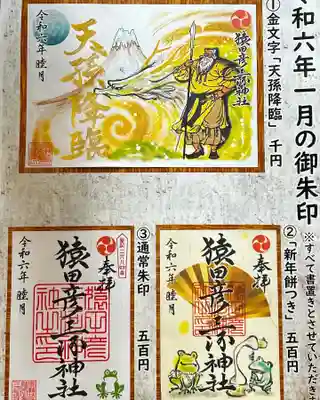 令和六年一月の御朱印
※すべて書置きとさせていただきま
①金文字「天孫降臨」 千円
令和六年 睦月
天孫降臨
猿田彦三河神社
②「新年餅つき」 五百円
奉拝
猿田彦三河神社
令和六年 睦月
③通常朱印 五百円
奉拝
猿田彦三河神社
令和六年 睦月